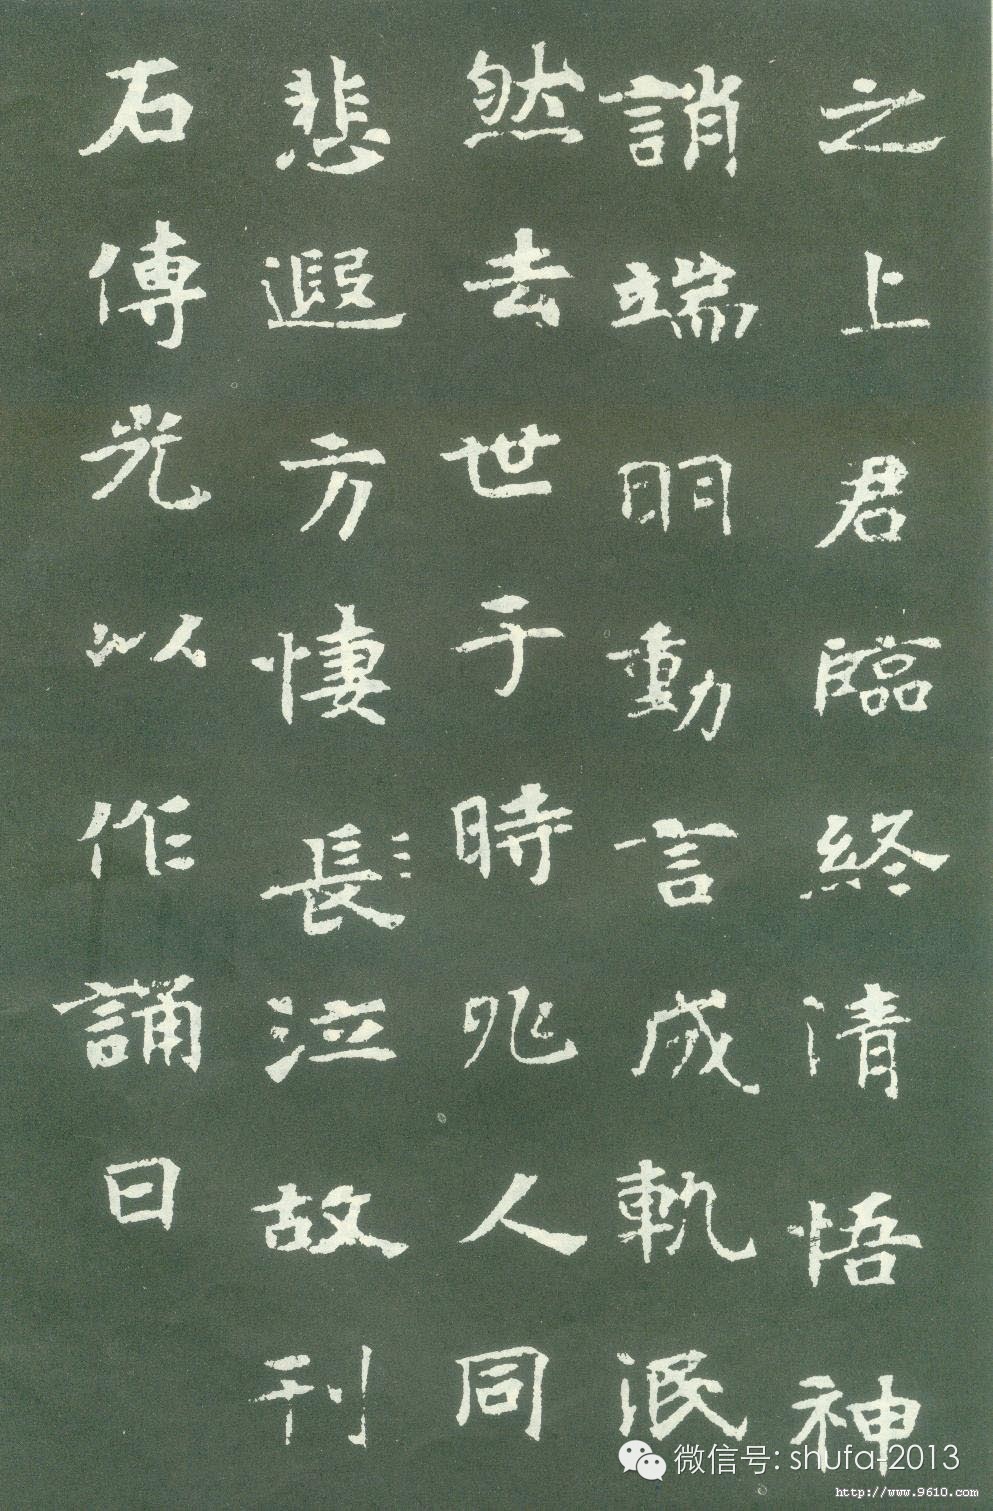 之上君臨終清悟神
誚端明動言成軌泯
然去世于時兆人同
悲遐方悽長泣故刊
石傳光以作誦曰
微信号: shufa-2013
http://www.9610.com